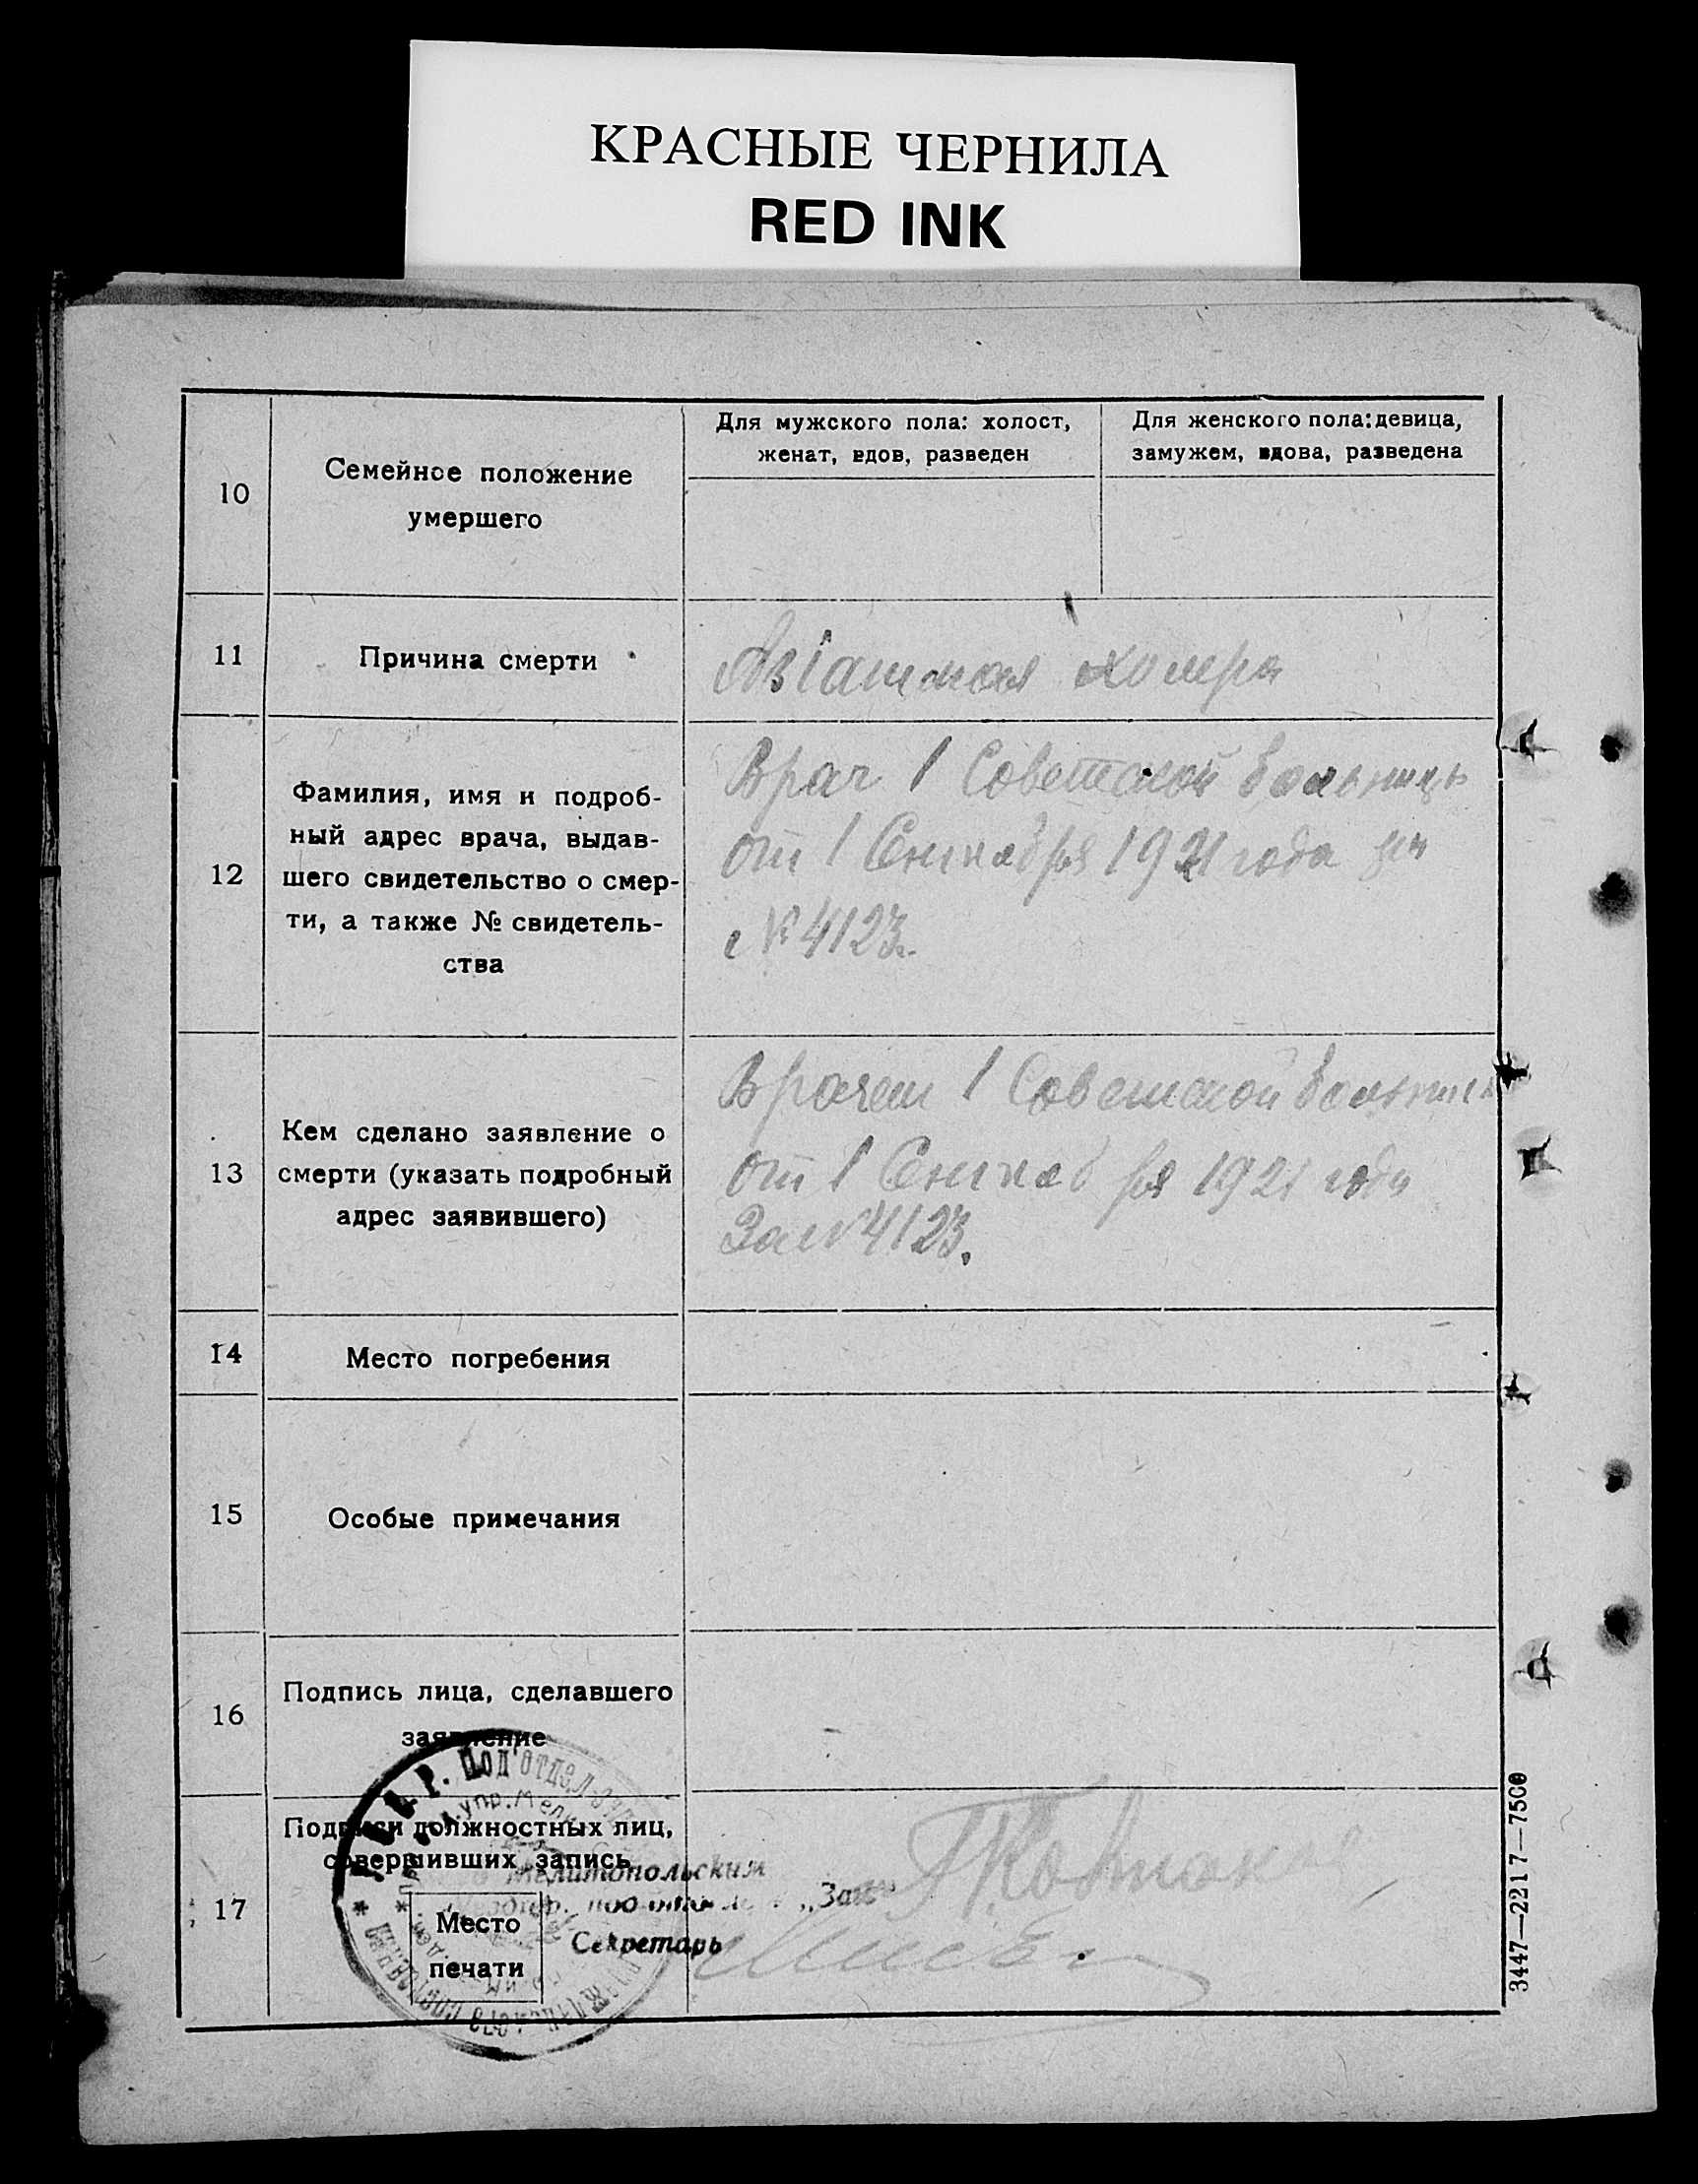 КРАСНЫЕ ЧЕРНИЛА
RED INK
10
Семейное положение
умершего
Для мужского пола: холост,
женат, вдов, разведен
Для женского пола: девица,
замужем, вдова, разведена
11
Причина смерти
Азіатская холера
12
Фамилия, имя и подроб-
ный адрес врача, выдав-
шего свидетельство о смер-
ти, а также № свидетель-
ства
Врач 1 Советской больницы
от 1 Сентября 1921 года
№ 4123.
13
Кем сделано заявление о
смерти (указать подробный
адрес заявившего)
Врачем 1 Советской
от 1 Сентября 1921 года
За № 4123.
14
Место погребения
15
Особые примечания
16
Подпись лица, сделавшего
заявление
17
Подписи должностных лиц,
совершивших запись
Место
печати
Под'отдел
упр. Мел
Мелитопольским
Секретарь
3447—2217—7500